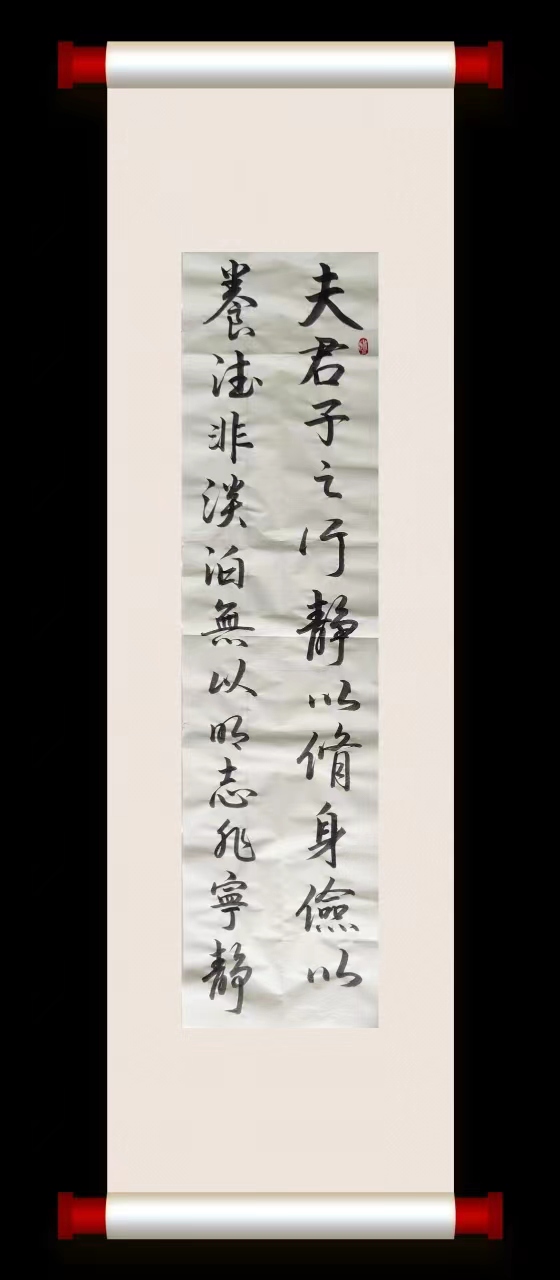 夫君子之行静以脩身儉以
養德非淡泊無以明志非寧静